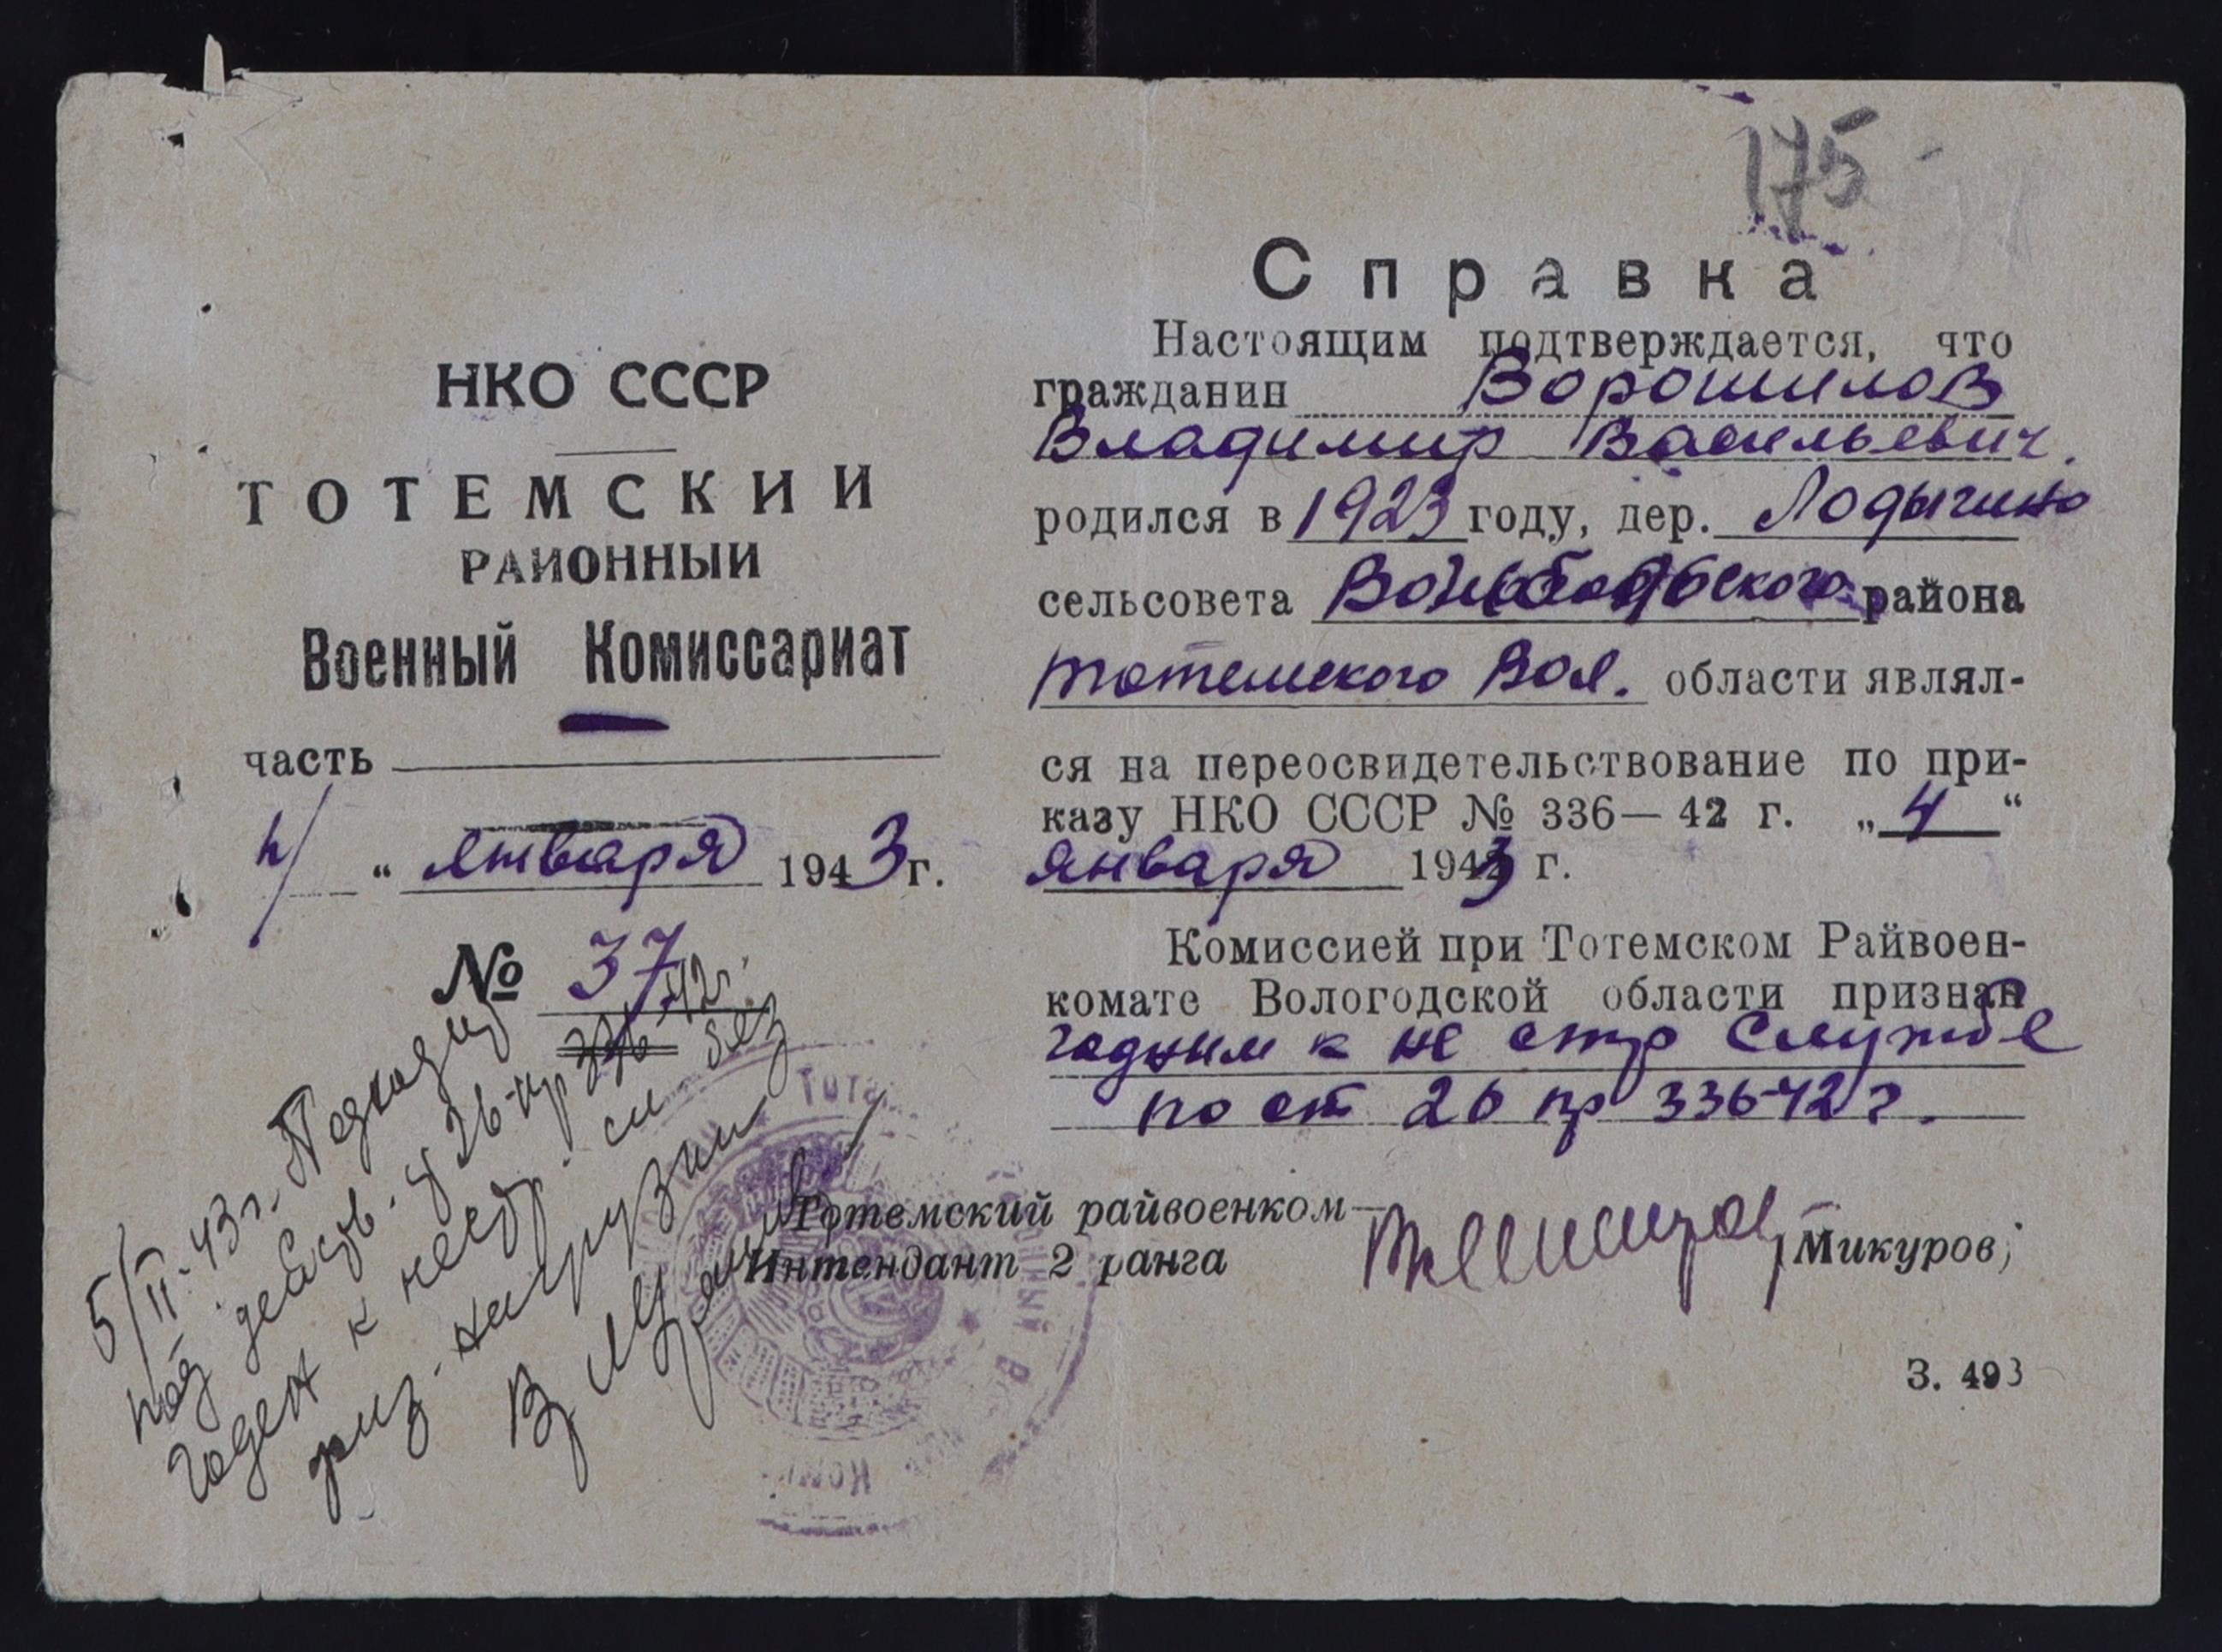 175
НКО СССР
ТОТЕМСКИИ
РАИОННЫИ
Военный Комиссариат
часть —
4/ " января 1943 г.
№ 37
5/II-43 г. Подходит
под действ. ст 26 пр 336 42 г.
годен к нестр. сл без
физ. нагрузки
Справка
Настоящим подтверждается, что
гражданин Ворошилов
Владимир Васильевич.
родился в 1923 году, дер. Лодыгино
сельсовета района
Тотемского Вол. области являл-
ся на переосвидетельствование по при-
казу НКО СССР № 336—42 г. „4“
января 1943 г.
Комиссией при Тотемском Райвоен-
комате Вологодской области признан
годным к не стр службе
по ст 26 пр 336-42 г.
Тотемский райвоенком—
Интендант 2 ранга (Микуров)
З. 493